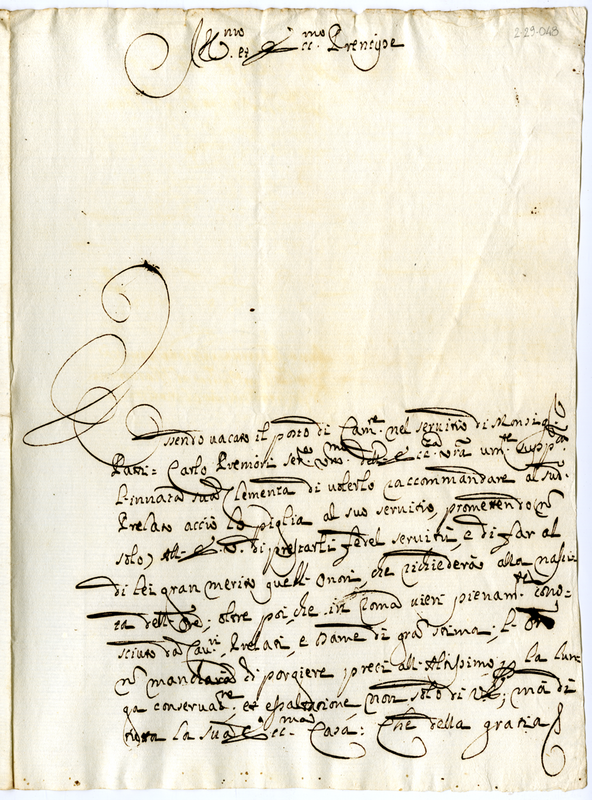 2-29-048
Ill.mo et Ecc.mo Prencipe
Essendo vacato il posto di Cam.re nel servitio di Monsig.
Patri: Carlo Premori ser.
l'innata sua Clemenza di volerlo raccomandare al sud.
Prelato acciò lo piglia al suo servitio, promettendo
solo) All' E. V. di prestarli fedel servitù, e di far al
di lei gran merito quell'honori, che richiederà alla nasci=
ta dell' oltre poi, che in Roma vien pienam.te cono=
sciuto da Cav.ri, Prelati, e Dame di gra stima, l'
n mancarà di porgiere preci all'Altissimo p la lun=
ga conservat.ne et esaltatione non solo di V.E., mà di
tutta la sua Ecc.ma Casa: Che della gratia